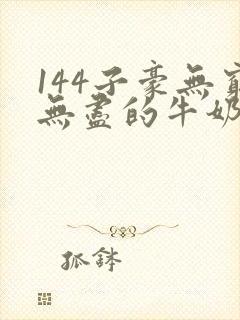 144子豪無窮
無盡的牛奶
孤鉢